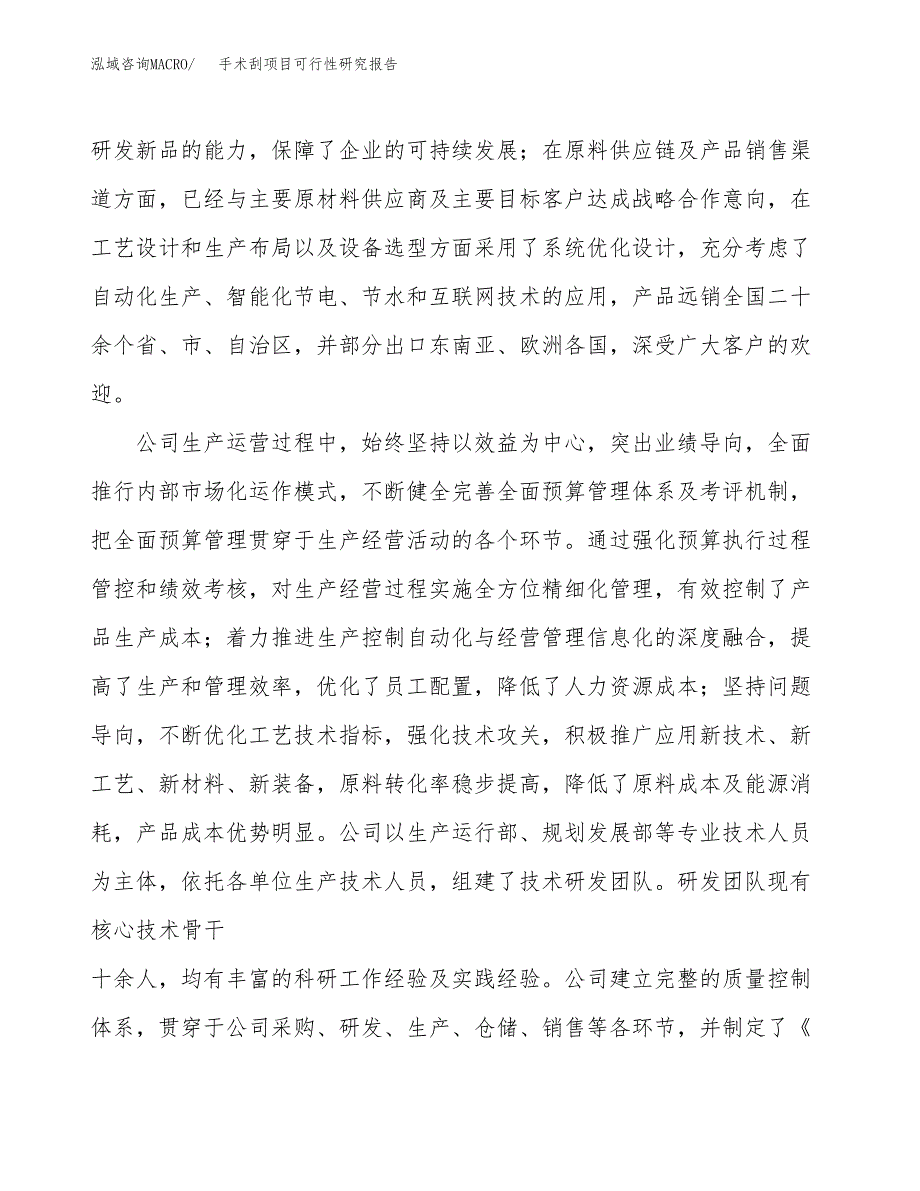 泓域咨询MACRO/ 手术刮项目可行性研究报告
研发新品的能力，保障了企业的可持续发展；在原料供应链及产品销售渠
道方面，已经与主要原材料供应商及主要目标客户达成战略合作意向，在
工艺设计和生产布局以及设备选型方面采用了系统优化设计，充分考虑了
自动化生产、智能化节电、节水和互联网技术的应用，产品远销全国二十
余个省、市、自治区，并部分出口东南亚、欧洲各国，深受广大客户的欢
迎。
公司生产运营过程中，始终坚持以效益为中心，突出业绩导向，全面
推行内部市场化运作模式，不断健全完善全面预算管理体系及考评机制，
把全面预算管理贯穿于生产经营活动的各个环节。通过强化预算执行过程
管控和绩效考核，对生产经营过程实施全方位精细化管理，有效控制了产
品生产成本；着力推进生产控制自动化与经营管理信息化的深度融合，提
高了生产和管理效率，优化了员工配置，降低了人力资源成本；坚持问题
导向，不断优化工艺技术指标，强化技术攻关，积极推广应用新技术、新
工艺、新材料、新装备，原料转化率稳步提高，降低了原料成本及能源消
耗，产品成本优势明显。公司以生产运行部、规划发展部等专业技术人员
为主体，依托各单位生产技术人员，组建了技术研发团队。研发团队现有
核心技术骨干
十余人，均有丰富的科研工作经验及实践经验。公司建立完整的质量控制
体系，贯穿于公司采购、研发、生产、仓储、销售等各环节，并制定了《